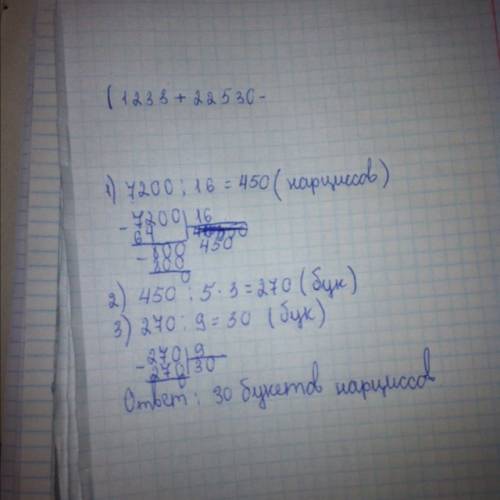 (1233 + 22530 -
1) 7200 : 16 = 450 (нарциссов)
-7200 | 16
64 450
-800
800
0
2) 450 : 5 · 3 = 270 (бук)
3) 270 : 9 = 30 (бук)
-270 | 9
270 30
0
Ответ : 30 букетов нарциссов